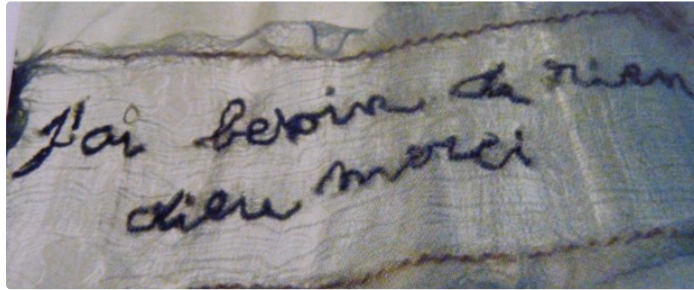 j'ai besoin de rien
dieu merci